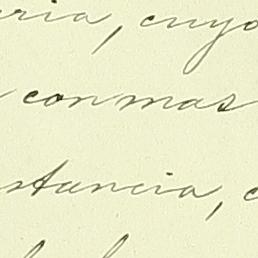 eria, cuyo
con mas
stancia, c